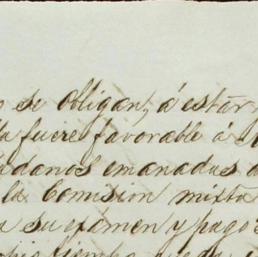 se obligan, á estar
fuere favorable á
danos emanadas d
la Comision mixta
a su exámen y pago
tiempo